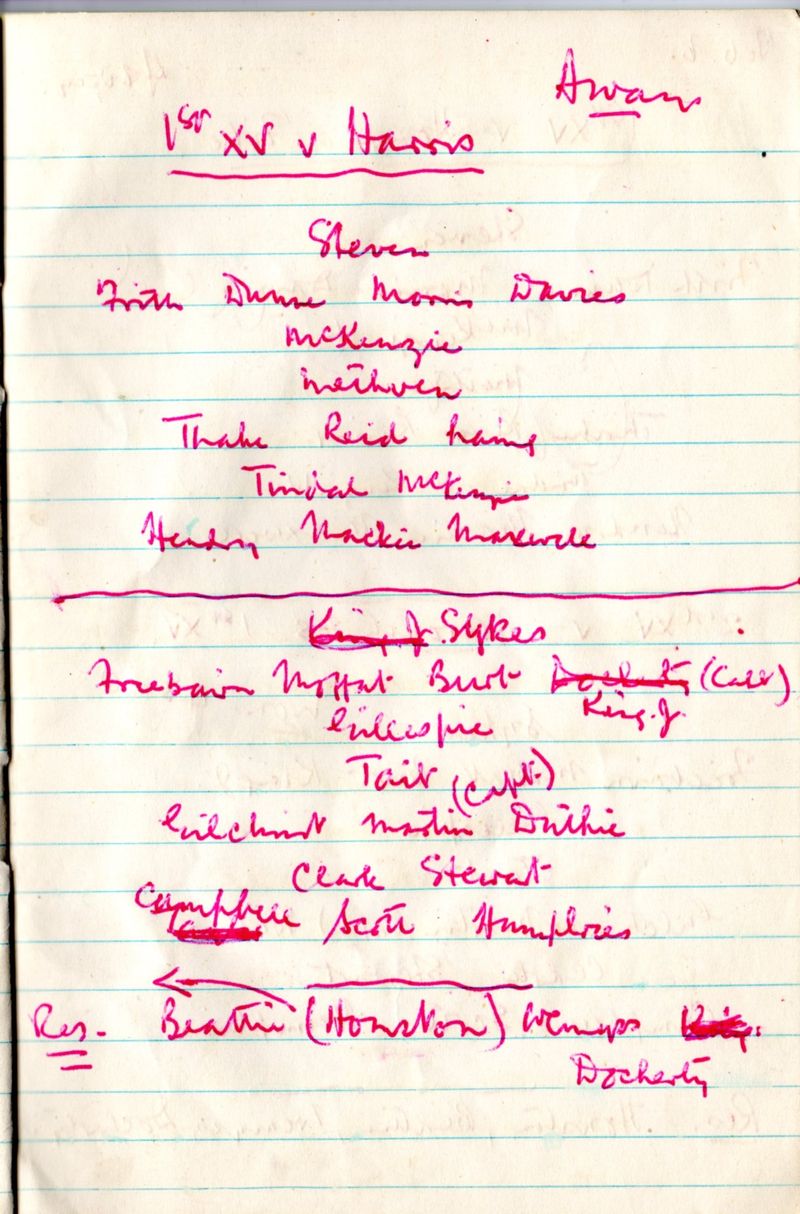 Away
1st XV v Harris
Steven
Frith Dunne Morris Davies
McKenzie
Methven
Thake Reid Laing
Tindal McKenzie
Hendry Mackie Maxwell
King J. Sykes
Freebairn Moffat Burt Docherty (Call)
King. J.
Gillespie
Tait (Capt.)
Gilchrist Martin Duthie
Clark Stewart
Campbell Scott Humphries
Res. Beattie (Houston) Wemyss
Docherty